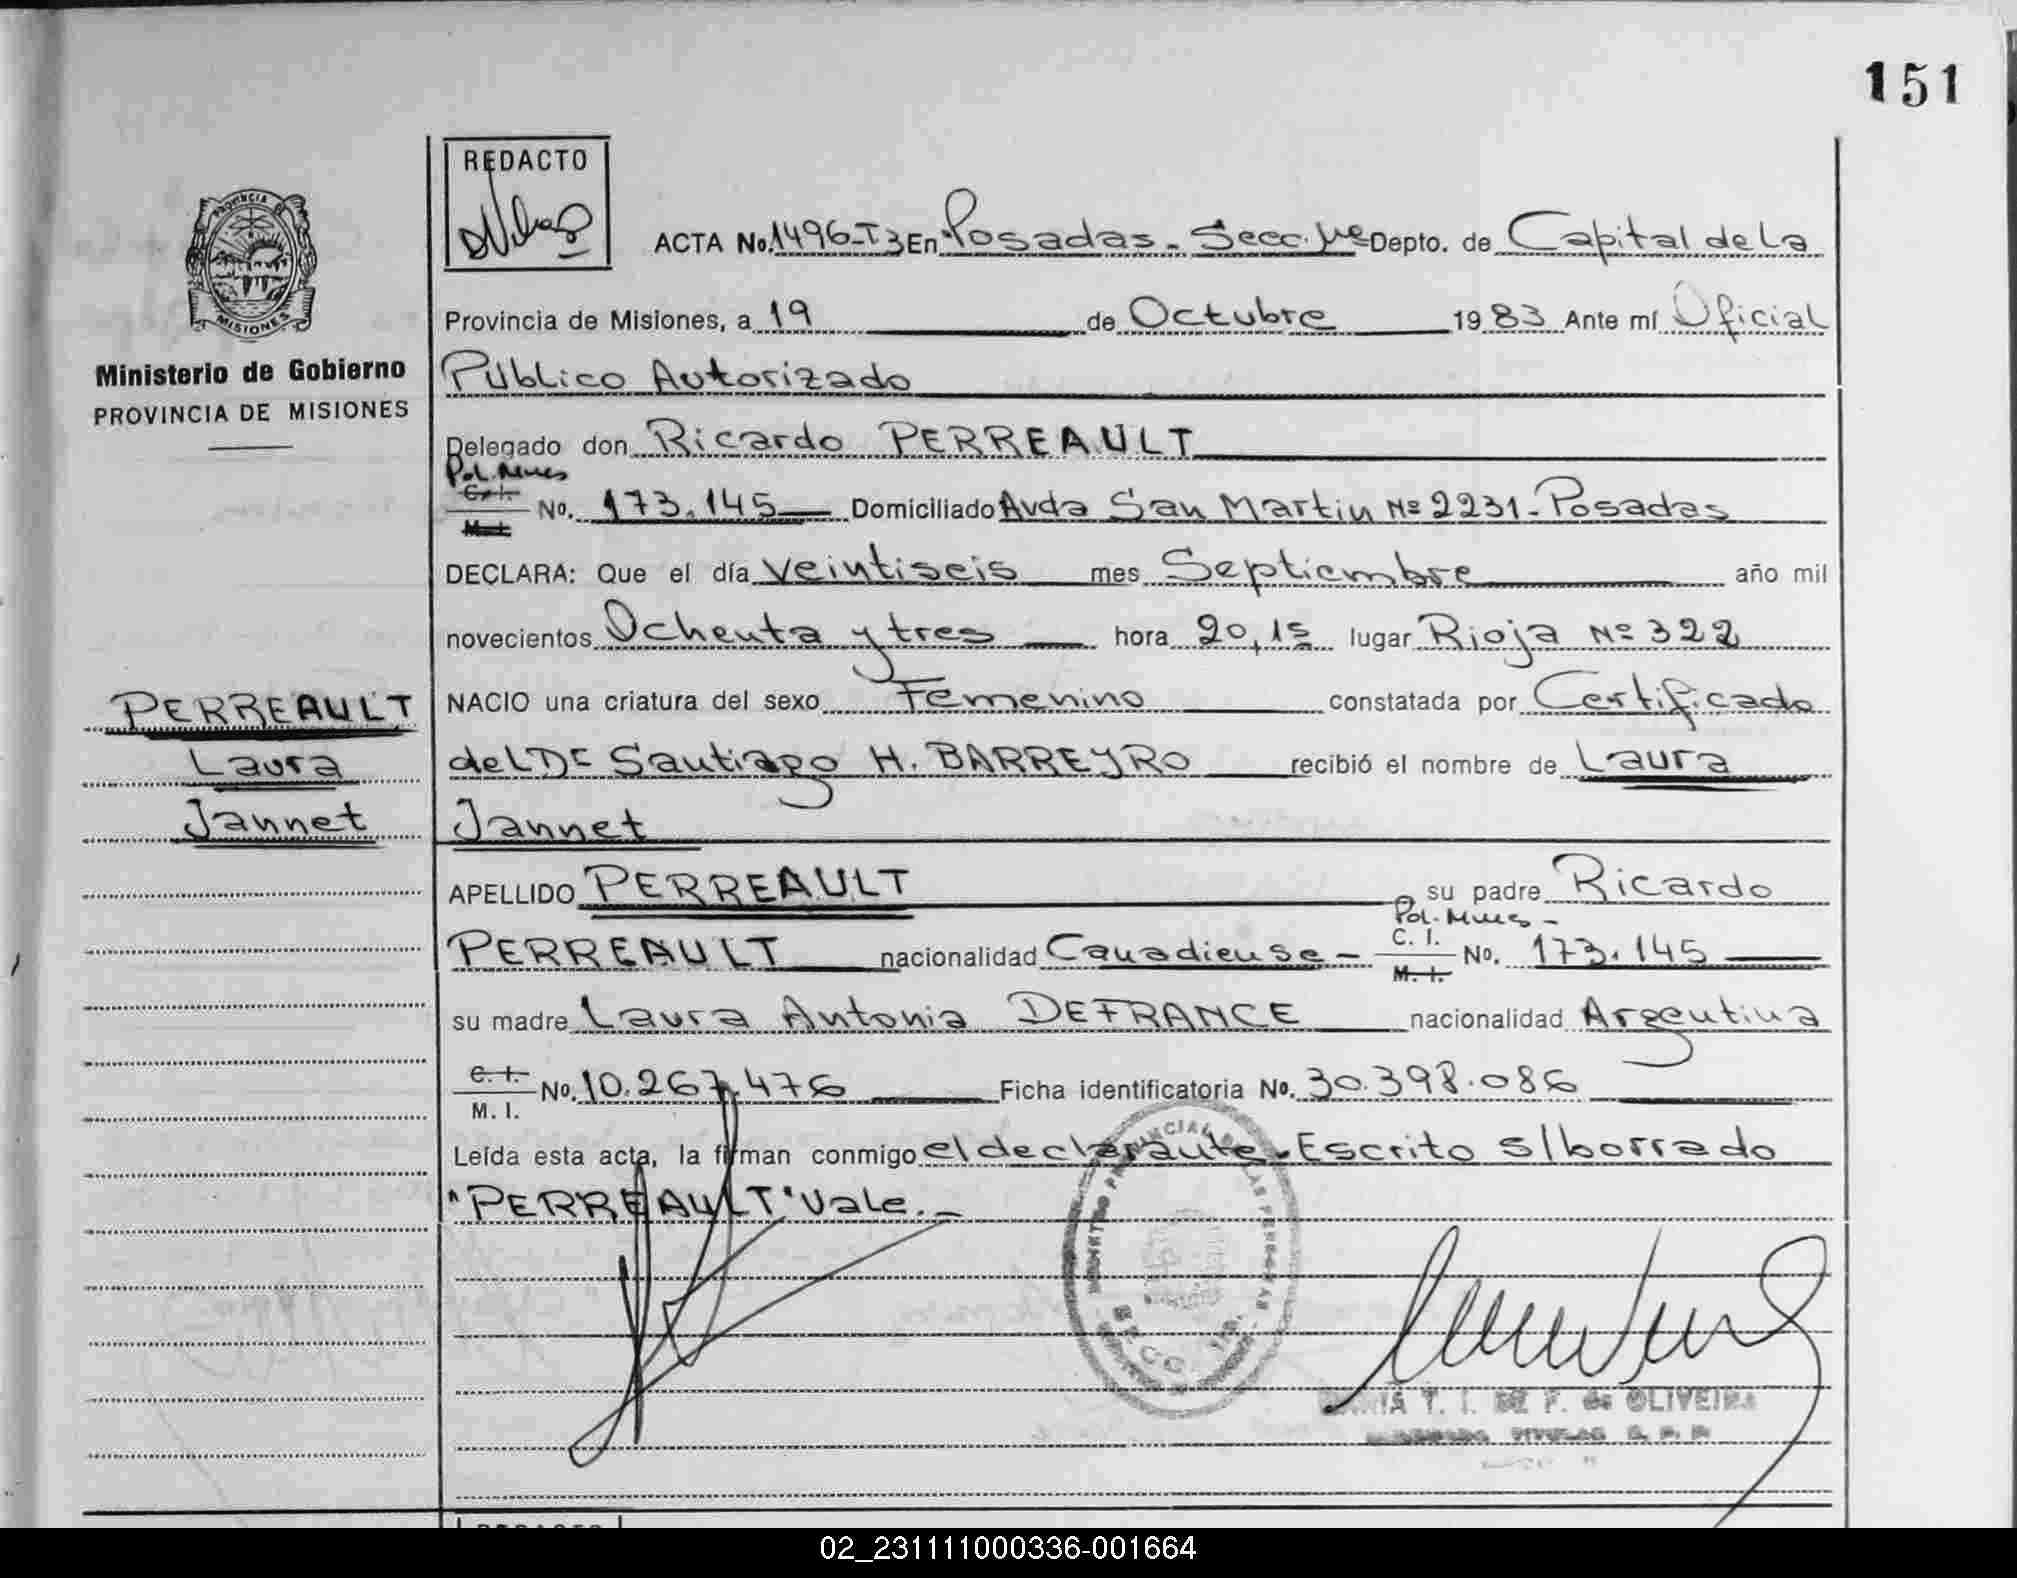 151
REDACTO
ACTA No. 1496-T3 En Posadas - Secc. 1ra Depto. de Capital de La
Provincia de Misiones, a 19 de Octubre 1983 Ante mí Oficial
Público Autorizado
Delegado don Ricardo PERREAULT
Pol. Mnes
C. I.
No. 173.145 Domiciliado Avda San Martin Nº 2231 - Posadas
M. I.
DECLARA: Que el día veintiseis mes Septiembre año mil
novecientos Ochenta y tres hora 20,15 lugar Rioja Nº 322
NACIO una criatura del sexo Femenino constatada por Certificado
del Dr Santiago H. BARREYRO recibió el nombre de Laura
Jannet
APELLIDO PERREAULT su padre Ricardo
Pol. Mnes -
PERREAULT nacionalidad Canadiense - C. I. No. 173.145
M. I.
su madre Laura Antonia DEFRANCE nacionalidad Argentina
C. I.
No. 10.267.476 Ficha identificatoria No. 30.398.086
M. I.
Leída esta acta, la firman conmigo el declarante. Escrito s/borrado
"PERREAULT" Vale. -
PROVINCIA DE
MISIONES
Ministerio de Gobierno
PROVINCIA DE MISIONES
PERREAULT
Laura
Jannet
PROVINCIAL DE LAS PERSONAS
SECC. 1ra.
T. I. DE F. de OLIVEIRA
TITULAR
02_231111000336-001664